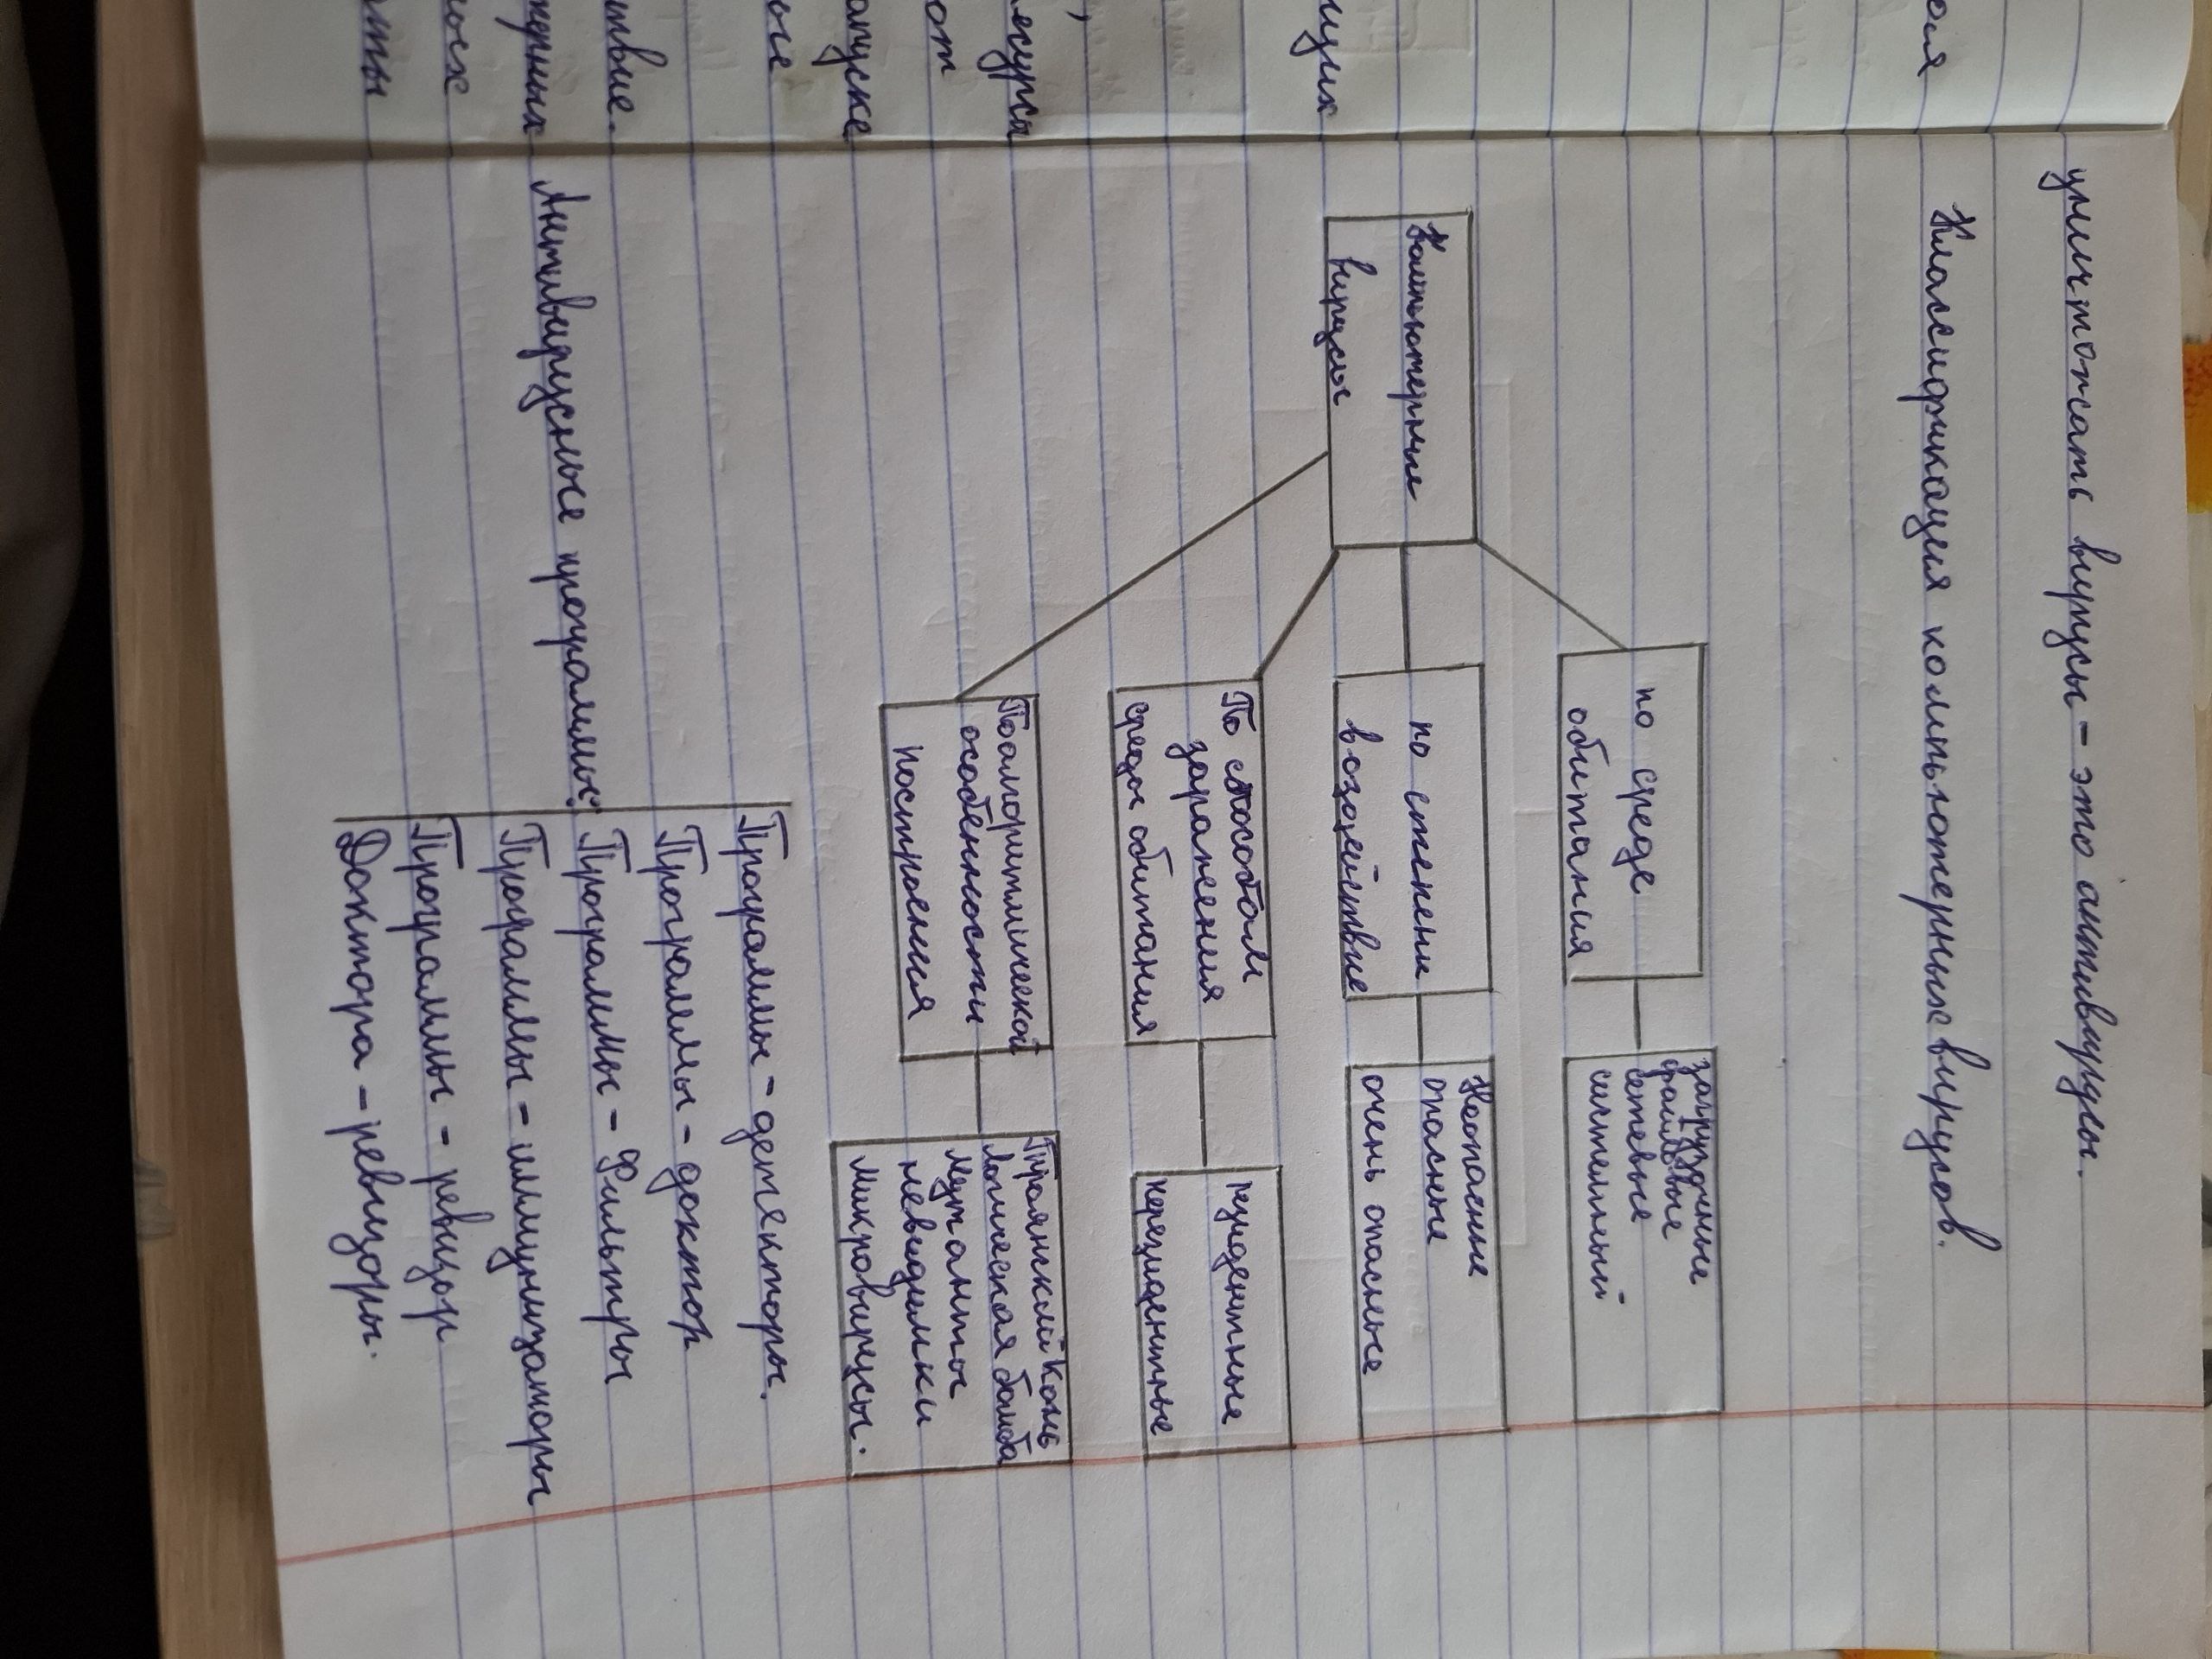 уничтожать вирусы - это антивирусы.
Классификация компьютерных вирусов.
Компьютерные
вирусы
по среде
обитания
загрузочные
файловые
сетевые
системный
по степени
воздействие
Неопасные
опасные
очень опасные
По способам
заражения
среды обитания
резидентные
нерезидентные
По алгоритмической
особенности
построения
Троянский конь
Логическая бомба
Мутанты
невидимки
Микровирусы.
Антивирусные программы:
Программы - детекторы.
Программы - доктор
Программы - Фильтры
Программы - иммунизаторы
Программы - ревизор
Доктора - ревизоры.